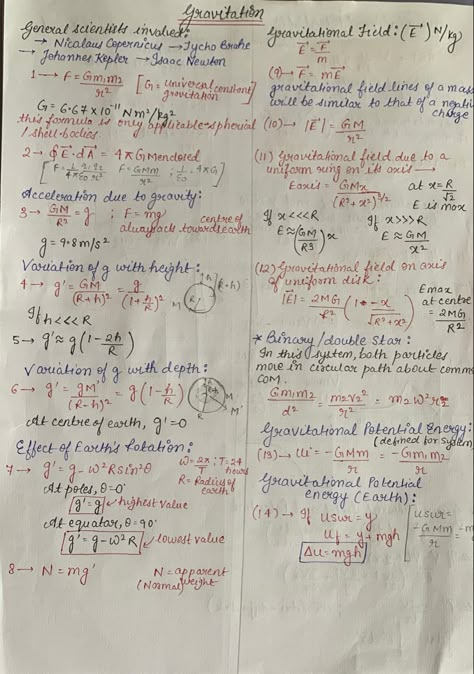 Gravitation
General scientists involved:
→ Nicolaus Copernicus → Tycho Brahe
→ Johannes Kepler → Isaac Newton
1 → F = Gm₁m₂/r² [G = universal constant gravitation]
G = 6.67 x 10⁻¹¹ Nm²/kg²
this formula is only applicable → spherical
/ shell-bodies.
2 → ∮E⃗.dA⃗ = 4πGMenclosed
Acceleration due to gravity:
3 → GM/R² = g ; F = mg
always acts towards centre of earth
g = 9.8 m/s²
Variation of g with height:
4 → g' = GM/(R+h)² = g/(1+h/R)²
If h <<< R
5 → g' ≈ g(1 - 2h/R)
Variation of g with depth:
6 → g' = gM'/(R-h)² = g(1 - h/R)
At centre of earth, g' = 0
Effect of Earth's Rotation:
7 → g' = g - ω²R sin²θ
ω = 2π/T ; T = 24 hours
R = Radius of earth
At poles, θ = 0°
g' = g highest value
At equator, θ = 90°
g' = g - ω²R lowest value
8 → N = mg'
N = apparent weight
(Normal)
Gravitational Field: (E⃗) N/kg
E⃗ = F⃗/m
(9) → F⃗ = mE⃗
gravitational field lines of a mass
will be similar to that of a
charge
(10) → |E⃗| = GM/r²
(11) Gravitational field due to a
uniform ring on its axis →
Eaxis = GMx/(R²+x²)^3/2
at x = R/√2
E is max
If x <<< R
E ≈ (GM/R³)x
If x >>> R
E ≈ GM/x²
(12) Gravitational field on axis
of uniform disk:
|E| = 2MG/R² (1 - x/√(R²+x²))
Emax at centre = 2MG/R²
* Binary/double Star:
In this system, both particles
move in circular path about
COM.
Gm₁m₂/d² = m₂v₂²/r₂ = m₂ω²r₂
Gravitational Potential Energy:
(defined for system)
(13) → U = -GMm/r = -Gm₁m₂/r
Gravitational Potential
energy (Earth):
(14) → If Usur = y
Uf = y + mgh
Δu = mgh
Usur =
-GMm/r